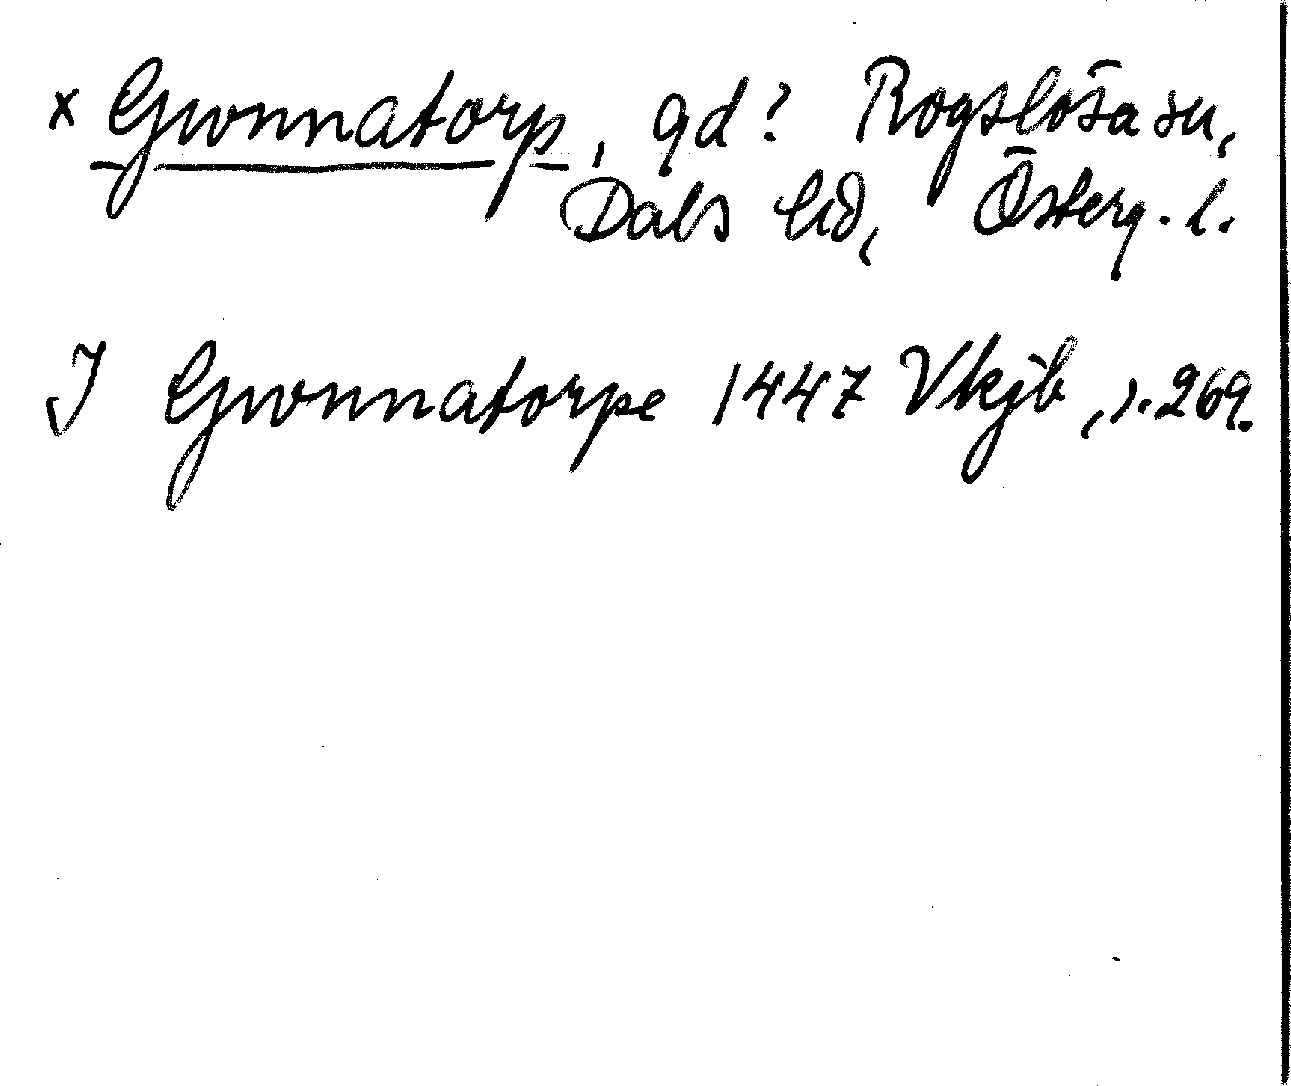 x Gwnnatorp, gd? Rogslösa sn,
Dals hd, Österg. l.
J Gwnnatorpe 1447 Vkjb, s. 269.